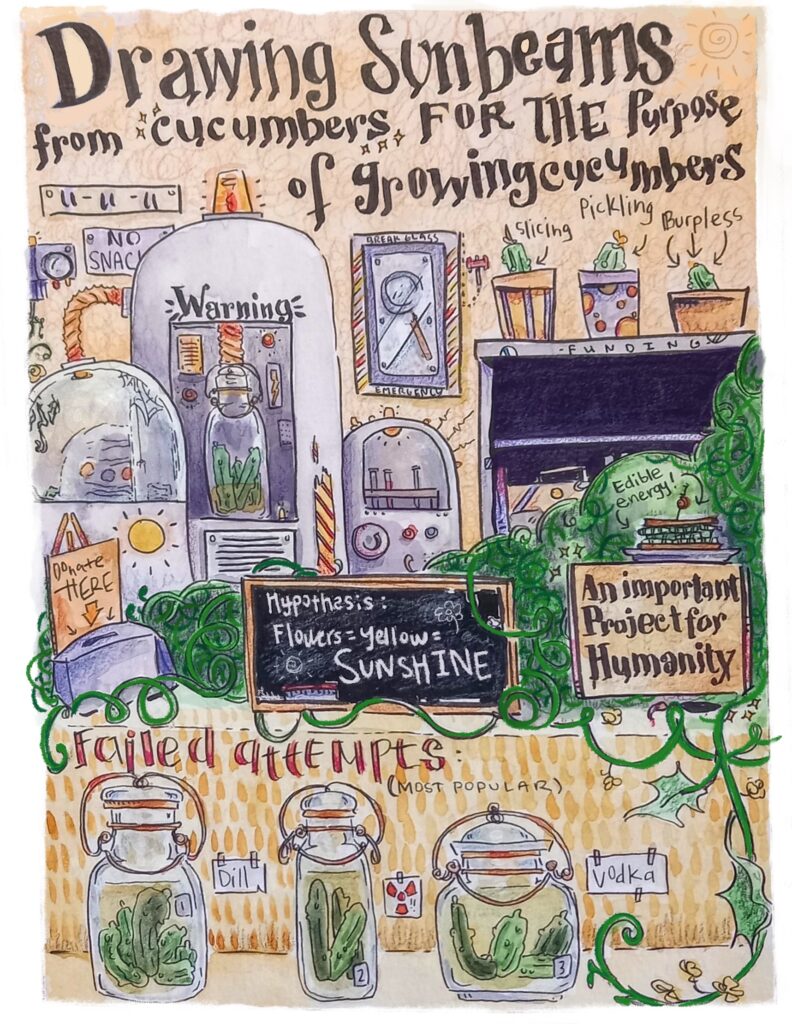 Drawing Sunbeams
from cucumbers FOR THE Purpose
of growing cucumbers
NO
SNACK
BREAK GLASS
EMERGENCY
slicing
Pickling
Burpless
Warning
FUNDING
Edible
energy!
Donate
HERE
Hypothesis:
Flowers = yellow =
SUNSHINE
An important
Project for
Humanity
Failed attEMPTS:
(MOST POPULAR)
Dill
Vodka
1
2
3